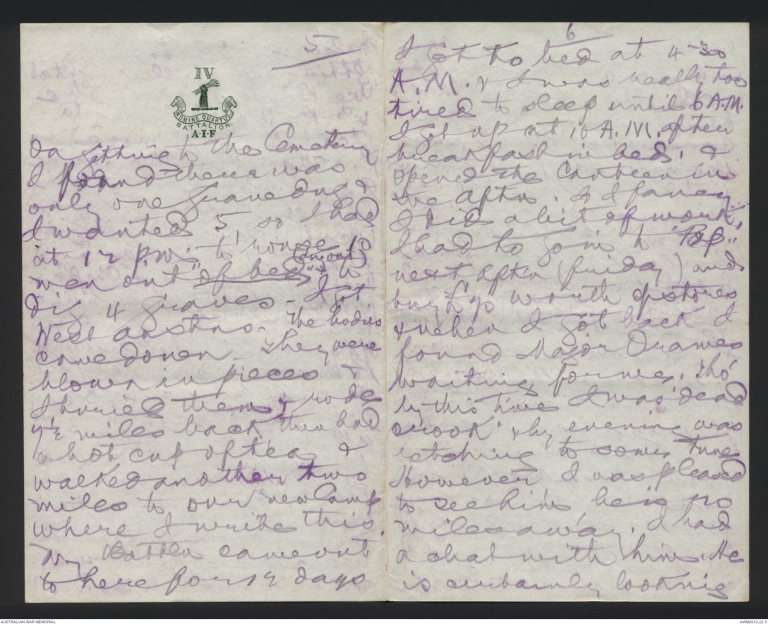 5
IV
NOMINE QUARTUS
BATTALION
A·I·F
the Cemetery
I found there was
only one grave dug &
I wanted 5 so I had
at 12 p.m. to rouse 18
men out of bed "Convos" to
dig 4 graves - I got
West austns. The bodies
came down. & they were
blown in pieces &
I buried them & rode
7½ miles back then had
a hot cup of tea &
walked another two
miles to our new Camp
where I write this.
My Battln came out
to here for 12 days
6
I got to bed at 4-30
A.M. & I was really too
tired to sleep until 6 A.M.
I got up at 10 A.M. after
breakfast in bed. &
opened the Canteen in
the aftn. So I fancy
I did a bit of work.
I had to go in to "Pop"
next aftn (friday) and
buy worth of stores
& when I got back I
found Major
waiting for me. tho'
by this time I was dead
crook & my evening was
to some tune
However I was pleased
to see him he is no
miles away. I had
a chat with him. He
is certainly looking
AUSTRALIAN WAR MEMORIAL
AWM2019.22.5